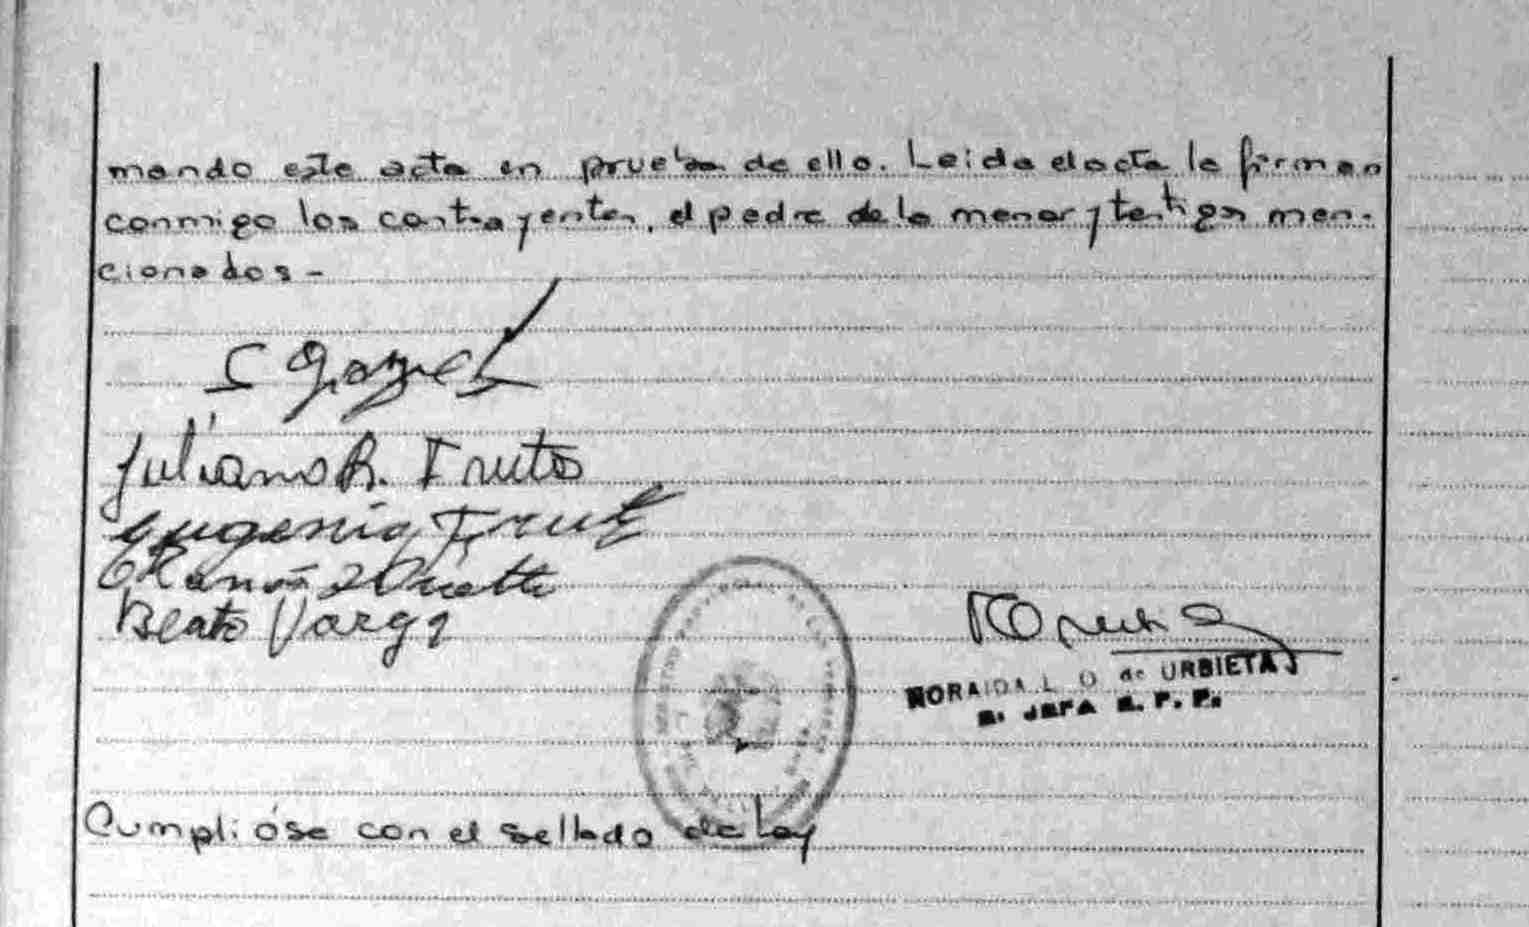 mando este acta en prueba de ello. Leida el acta la firman
conmigo los contrayentes, el padre de la menor y testigos men-
cionados -
Juliano R. Fruto
Eugenio Frut
Ramón
Beato Varga
NORAIDA L. O de URBIETA
JEFA
Cumplióse con el sellado de Ley